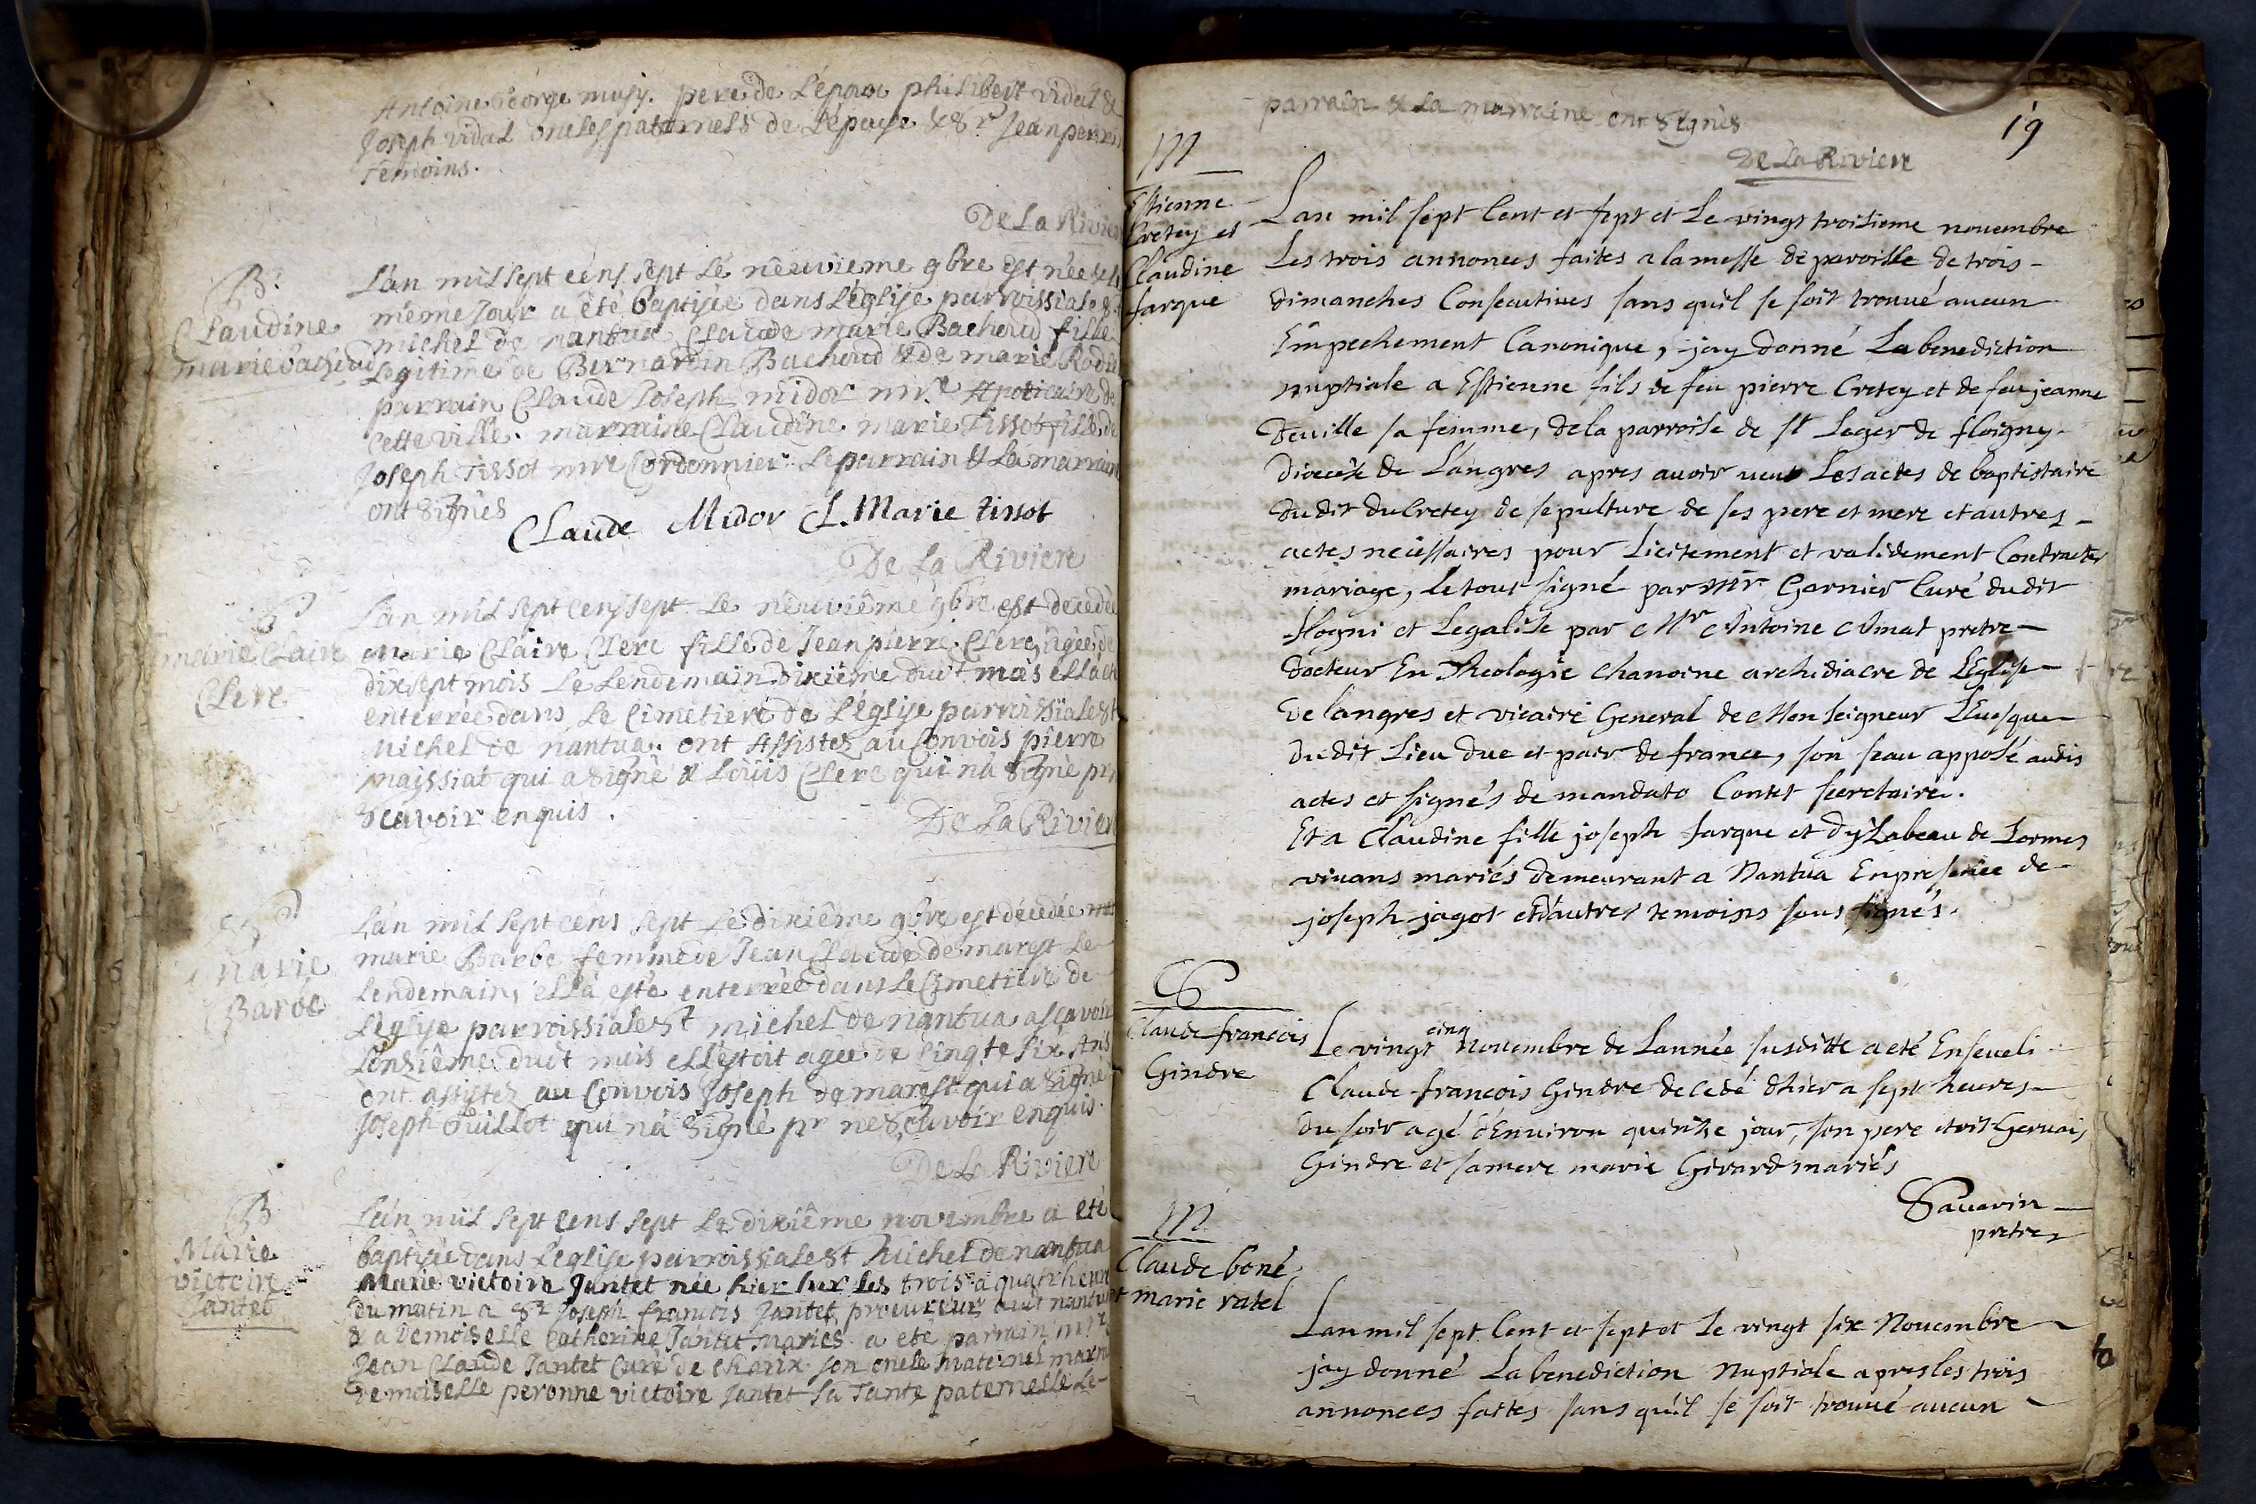 Antoine George musy. pere de L'épaux philibert vidal &
Joseph vidal oncles paternels de L'épouse & Sr Jean perrin
temoins.
De La Rivier
B.
Claudine
marie bachoud
L'an mil sept céns sept Lé neuviême 9bre est née & le
même Jour a été baptisée dans L'église parroissiale St
michel de nantua Claude marie Bachoud fille
Legitime de Bernardin Bachoud & de marie Rodet
parrain Claude Joseph midor mre Apoticaire de
cette ville. marraine Claudine marie Tissot fille de
Joseph Tissot mre Cordonnier. Le parrain & La marraine
ont signés
Claude Midor CL. Marie tissot
De La Riviere
S
marie Claire
Clerc
L'an mil sept cens sept Le neuviême 9bre est decedée
Marie Claire Clerc fille de Jean pierre Clerc, agée de
dix sept mois Le Lendemain dixiême dudt mois ella été
enterrée dans Le Cimetiere de L'églyse parroissiale St
Michel de nantua. ont Assistez au Convois pierre
mayssiat qui a signé & Loüis Clerc qui na signé pr
scavoir enquis.
De La Rivier
S
marie
Barbe
L'an mil sept céns sept Le dixiême 9bre est décedée
marie Barbe femme de Jean Claude de marest Le
Lendemain, ella esté enterrée dans Le Cimetiere de
L'églyse parroissiale St michel de nantua ascavoir
L'onziême dudt mois ell'estoit agee de Cinqte six Ans
ont assistez au Convois Joseph de marest qui a signé
Joseph Guillot qui n'a signé pr ne scavoir enquis.
De La Riviere
B
Marie
victoire
Jantet
L'an mil sept cens sept Le dixiême novembre a eté
baptisée dans L'eglise parroissiale St Michel de nantua
Marie victoire Jantet née hier sur les trois a quatr heures
du matin a Sr Joseph francois Jantet procureur audt nantua
& a Demoiselle Catherine Jantet mariés. a eté parrain mre
Jean Claude Jantet Curé de Charix son oncle maternel marne
demoiselle peronne victoire Jantet sa Tante paternelle Le
parrain & La marraine ont signés
19
De La Riviere
M
Estienne
Cretey et
Claudine
farque
Lan mil sept Cent et sept et Le vingt troisieme nouembre
Les trois annonces faites a la messe de paroisse de trois
dimanches Consecutiues sans quil se soit trouué aucun
Empechement Canonique, jay donné La benediction
nuptiale a Estienne fils de feu pierre Cretey et de feu jeanne
Deuille sa femme, de la parroise de St Leger de floigny
diocese de Langres apres auoir veu Les actes de baptistaire
dudit du Cretey de sepulture de ses pere et mere et autres
actes necessaires pour Licitement et validement Contracter
mariage, le tout signé par Mr Garnier Curé dudit
flogni et Legalise par Mr Antoine Amat pretre
docteur En Theologie chanoine archidiacre de L'Eglise
de langres et vicaire General de Monseigneur L'Euesque
dudit Lieu duc et pair de france, son seau apposé audis
actes et signés de mandato Contet secretaire.
Et a Claudine fille joseph farque et dysabeau de Lormes
viuans mariés demeurant a Nantua En presence de
joseph jagot et d'autres temoins sous signés.
S
Claude francois
Gindre
Le vingt cinq nouembre de Lannée susditte a eté Enseueli
Claude francois Gindre decedé d'hier a sept heures
du soir agé d'Enuiron quinse jour, son pere etoit Geruais
Gindre et sa mere marie Girard mariés
Sauarin
pretre
M
Claude boné
et marie ratel
Lan mil sept Cent et sept et Le vingt six Nouembre
jay donné La benediction Nuptiale apres les trois
annonces faites sans quil se soit trouué aucun